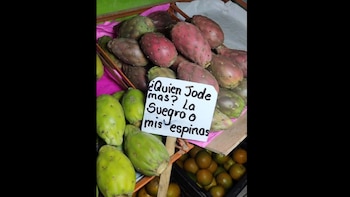 ¿Quien Jode
mas? La
Suegra o
mis espinas